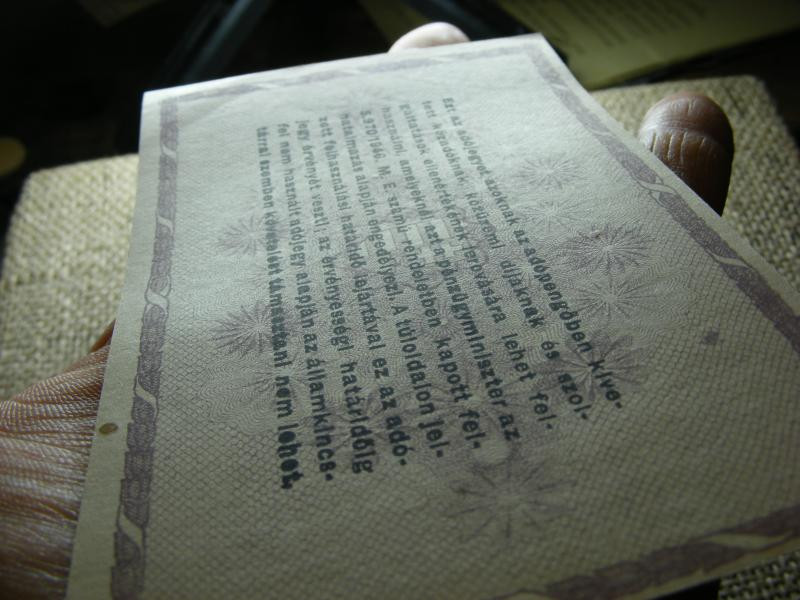 Ezt az adójegyet azoknak az adópengőben kive-
tett közadóknak, közüzemi díjaknak és szol-
gáltatások ellenértékének lerovására lehet fel-
használni, amelyeknél azt a pénzügyminiszter az
5.970/1946. M. E. számú rendeletben kapott fel-
hatalmazás alapján engedélyezi. A túloldalon jel-
zett felhasználási határidő lejártával ez az adó-
jegy érvényét veszti; az érvényességi határidőig
fel nem használt adójegy alapján az államkincs-
tárral szemben követelést támasztani nem lehet.